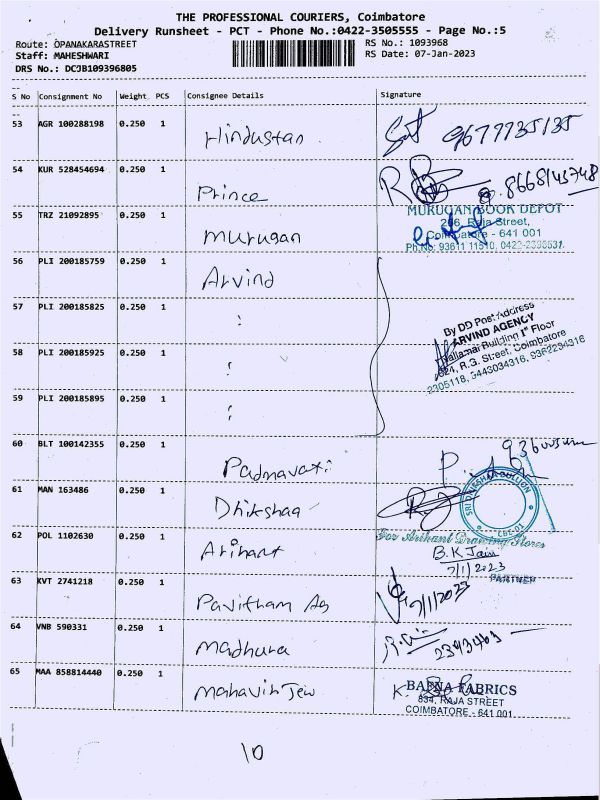 THE PROFESSIONAL COURIERS, Coimbatore
Delivery Runsheet - PCT - Phone No.:0422-3505555 - Page No.:5
Route: OPANAKARASTREET
RS No.: 1093968
Staff: MAHESHWARI
RS Date: 07-Jan-2023
DRS No.: DCOB109396805
S No Consignment No Weight PCS Consignee Details Signature
53 AGR 100288198 0.250 1 Hindustan 9677735135
54 KUR 528454694 0.250 1 Prince
55 TRZ 21092895 0.250 1 Murugan
MURUGAN BOOK DEPOT
Raja Street,
Coimbatore - 641 001
56 PLI 200185759 0.250 1 Arvind
57 PLI 200185825 0.250 1 :
By DD Post Address
ARVIND AGENCY
Building 1st Floor
58 PLI 200185925 0.250 1 :
R.G. Street, Coimbatore
59 PLI 200185895 0.250 1 :
60 BLT 100142355 0.250 1 Padmavati
61 MAN 163486 0.250 1 Dhikshaa
62 POL 1102630 0.250 1 Arihant
For Arihant Drawing Stores
B.K Jain
7/1/2023
PARTNER
63 KVT 2741218 0.250 1 Pavitham Ag
9/1/2023
64 VNB 590331 0.250 1 Madhura
65 MAA 858814440 0.250 1 Mahavir Jew
BAFNA FABRICS
834, RAJA STREET
COIMBATORE - 641 001.
10